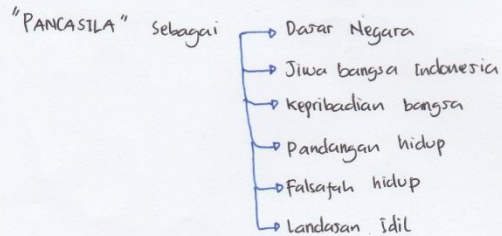 "PANCASILA" sebagai
Dasar Negara
Jiwa bangsa Indonesia
Kepribadian bangsa
Pandangan hidup
Falsafah hidup
Landasan Idil